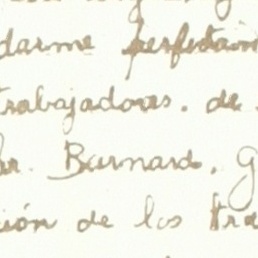 darme perfectam
trabajadores. de
ar. Barnard. G
ión de los tra